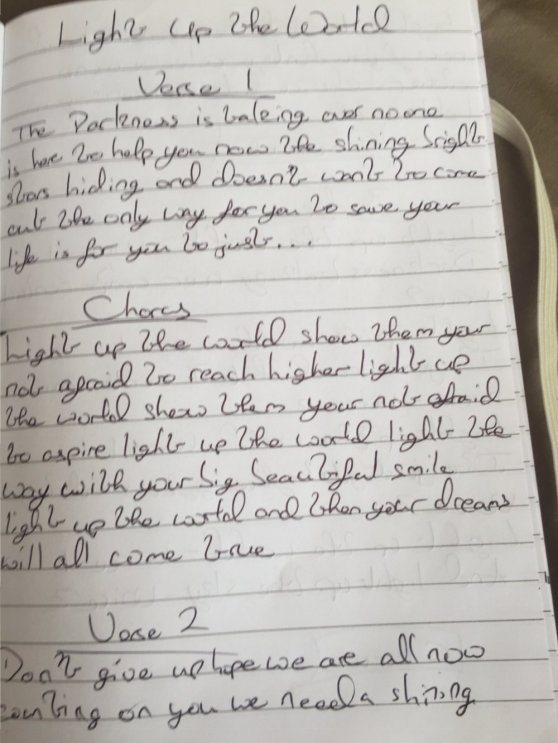 Light up the World
Verse 1
The Darkness is takeing over no one
is here to help you now the shining bright
stars hiding and doesn't want to come
out the only way for you to save your
life is for you to just...
Chorcs
Light up the world show them your
not afraid to reach higher light up
the world show them your not afraid
to aspire light up the world light the
way with your big beautiful smile
light up the world and then your dreams
will all come true
Verse 2
Don't give up hope we are all now
counting on you we need a shining